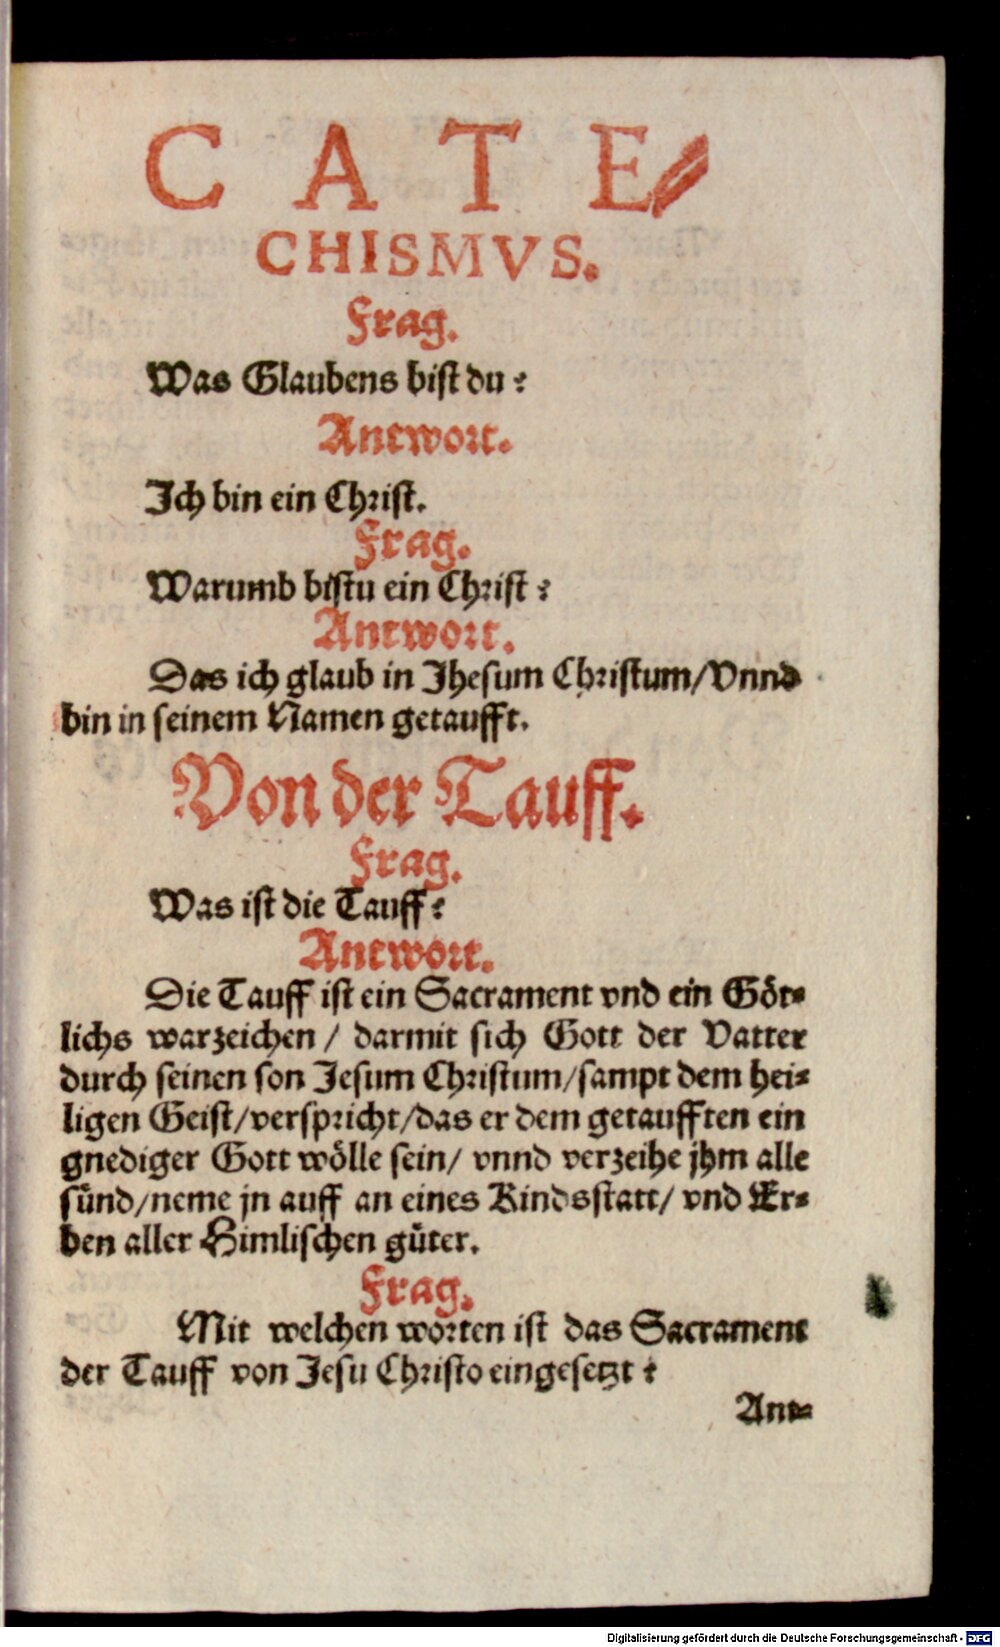 CATE⸗
CHISMVS.
Frag.
Was Glaubens bist du?
Antwort.
Ich bin ein Christ.
Frag.
Warumb bistu ein Christ?
Antwort.
Das ich glaub in Jhesum Christum/ Vnnd
bin in seinem Namen getaufft.
Von der Tauff.
Frag.
Was ist die Tauff?
Antwort.
Die Tauff ist ein Sacrament vnd ein Göt⸗
lichs warzeichen / darmit sich Gott der Vatter
durch seinen son Jesum Christum/ sampt dem hei⸗
ligen Geist/ verspricht/ das er dem getaufften ein
gnediger Gott wölle sein/ vnnd verzeihe jhm alle
sünd/ neme jn auff an eines Kindsstatt/ vnd Er⸗
ben aller Himlischen güter.
Frag.
Mit welchen worten ist das Sacrament
der Tauff von Jesu Christo eingesetzt?
Ant⸗
Digitalisierung gefördert durch die Deutsche Forschungsgemeinschaft - DFG